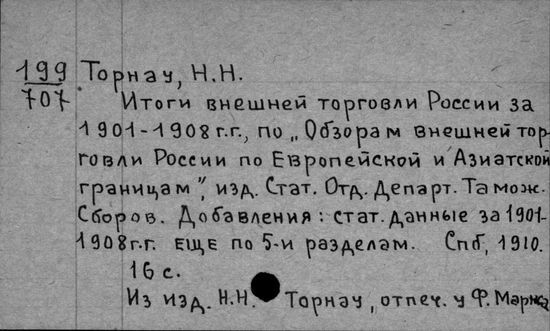 199
707
Торнау, Н.Н.
Итоги внешней торговли России за
1901-1908 г.г., по „Обзорам внешней тор-
говли России по Европейской и Азиатской
границам", изд. Стат. Отд. Департ. Тамож.
Сборов. Добавления: стат. данные за 1901-
1908 г.г. еще по 5-и разделам. Спб, 1910.
16 с.
Из изд. Н.Н. Торнау, отпеч. у Ф. Маркса